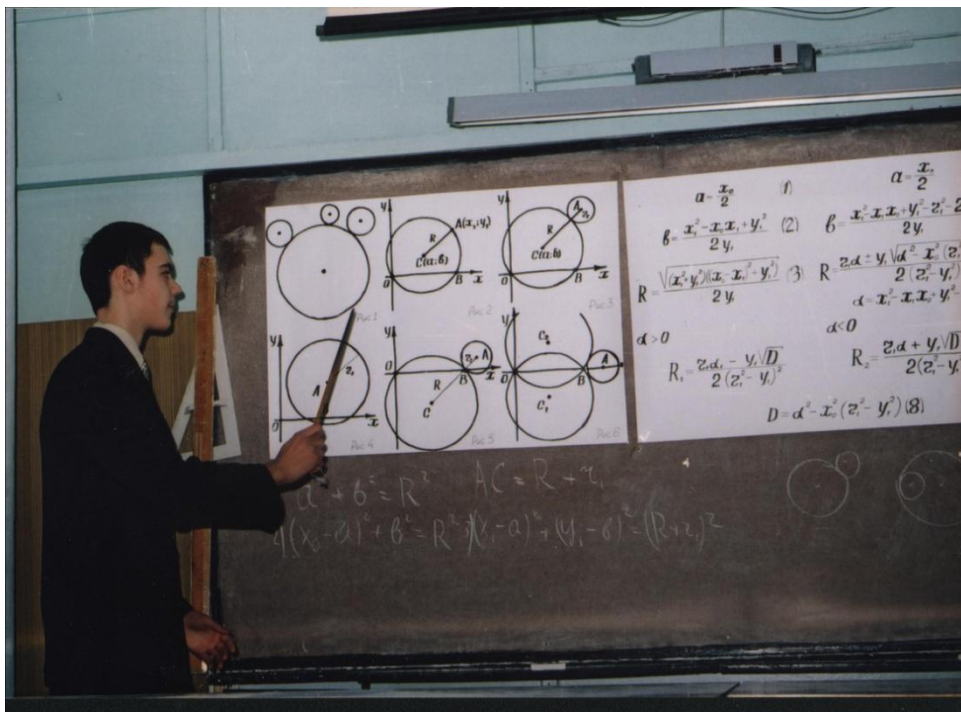 y
A(x₁;y₁)
R
C(a;в)
O
B
x
Рис 1
Рис 2
y
A
z₁
R
C(a;в)
O
B
x
Рис 3
y
A
z₁
O
x
Рис 4
y
O
z₁
A
B
x
R
C
Рис 5
y
C₂
O
B
A
C₁
Рис 6
a = x₀/2 (1)
в = (x₁² − x₀x₁ + y₁²)/2y₁ (2)
R = √((x₁² + y₁²)((x₀ − x₁)² + y₁²))/2y₁ (3)
d > 0
R₁ = (z₁d − y₁√D)/2(z₁² − y₁)²
a = x₀/2
в = (x₁² − x₁x₀ + y₁² − z₁² − 2
R = (z₁d ± y₁√(d² − x₀²(z₁
2(z₁² − y₁²)
d = x₁² − x₁x₀ + y₁² −
d < 0
R₂ = (z₁d + y₁√D)/2(z₁² − y₁
D = d² − x₀²(z₁² − y₁²) (8)
a² + в² = R² AC = R + z₁
(x₀ − a)² + в² = R² (x₁ − a)² + (y₁ − в)² = (R + z₁)²